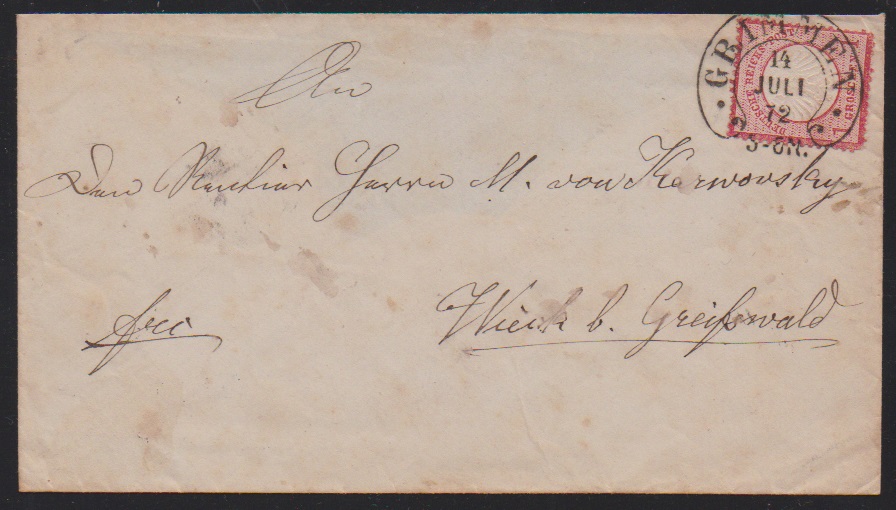 GRIMMEN
14
JULI
72
5-6N.
DEUTSCHE REICHS-POST
1 GROSCHEN 1
An
Den Rentier Herrn M. von Korwovsky
frco
Wieck b. Greifswald